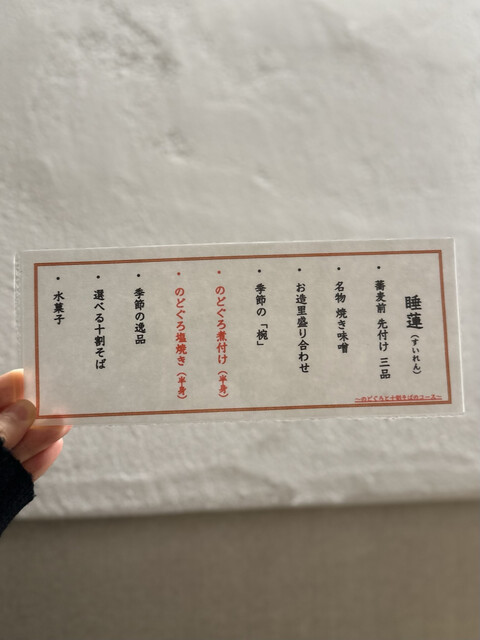 睡蓮（すいれん）
～のどぐろと十割そばのコース～
・蕎麦前 先付け 三品
・名物 焼き味噌
・お造里盛り合わせ
・季節の「椀」
・のどぐろ煮付け（半身）
・のどぐろ塩焼き（半身）
・季節の逸品
・選べる十割そば
・水菓子